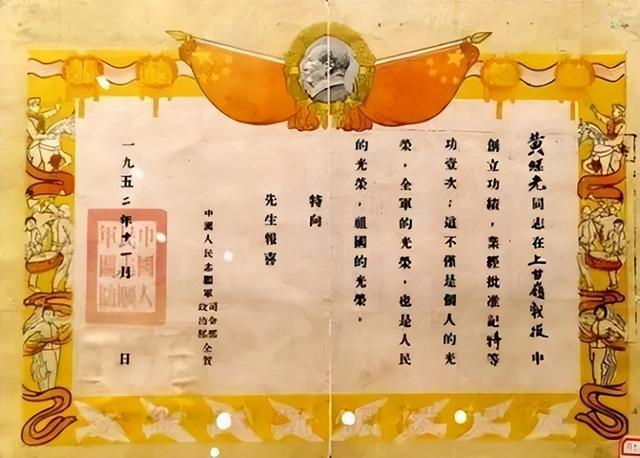 黃继光同志在上甘嶺戰役中
創立功績，業經批准記特等
功壹次；這不僅是個人的光
榮，全軍的光榮，也是人民
的光榮，祖國的光榮。
特向
先生報喜
中國人民志願軍司令部政治部仝賀
一九五二年十一月 日